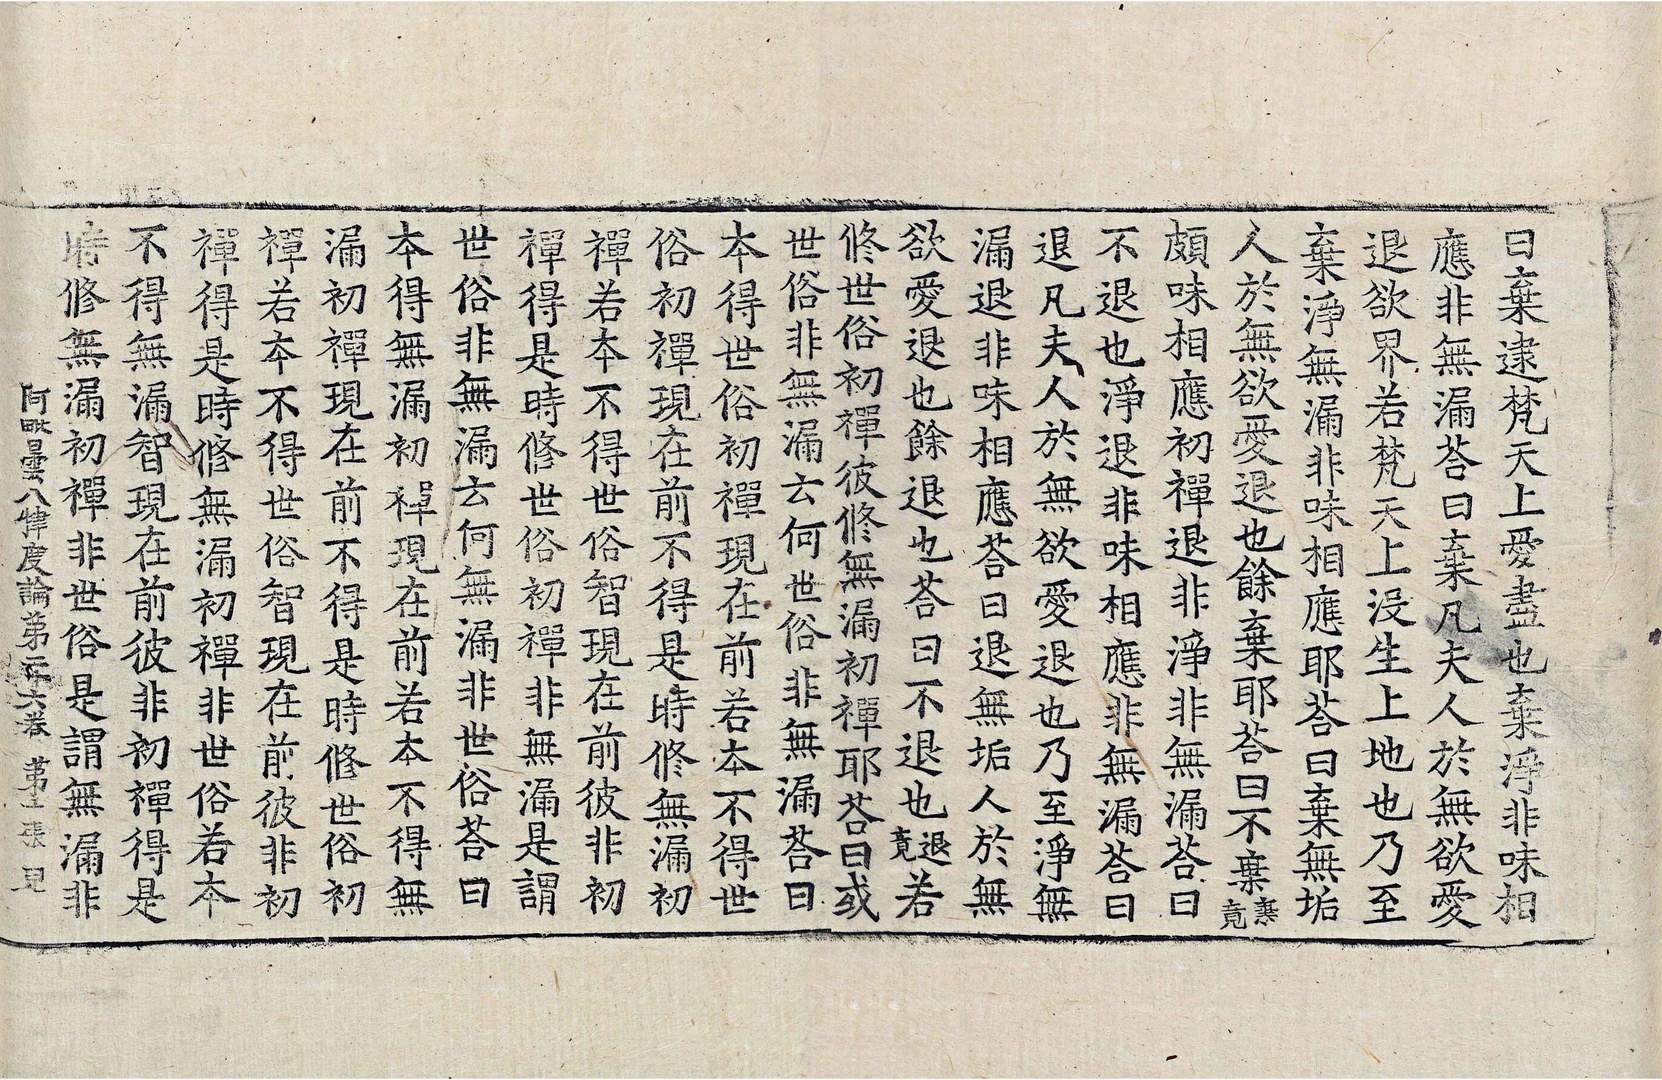 曰棄逮梵天上愛盡也棄淨非味相
應非無漏荅曰棄凡夫人於無欲愛
退欲界若梵天上沒生上地也乃至
棄淨無漏非味相應耶荅曰棄無垢
人於無欲愛退也餘棄耶荅曰不棄棄竟
頗味相應初禪退非淨非無漏荅曰
不退也淨退非味相應非無漏荅曰
退凡夫人於無欲愛退也乃至淨無
漏退非味相應荅曰退無垢人於無
欲愛退也餘退也荅曰不退也退竟若
修世俗初禪彼修無漏初禪耶荅曰或
世俗非無漏云何世俗非無漏荅曰
本得世俗初禪現在前若本不得世
俗初禪現在前不得是時修無漏初
禪若本不得世俗智現在前彼非初
禪得是時修世俗初禪非無漏是謂
世俗非無漏云何無漏非世俗荅曰
本得無漏初禪現在前若本不得無
漏初禪現在前不得是時修世俗初
禪若本不得世俗智現在前彼非初
禪得是時修無漏初禪非世俗若本
不得無漏智現在前彼非初禪得是
時修無漏初禪非世俗是謂無漏非
阿毗曇八犍度論第二十六卷 第十 張